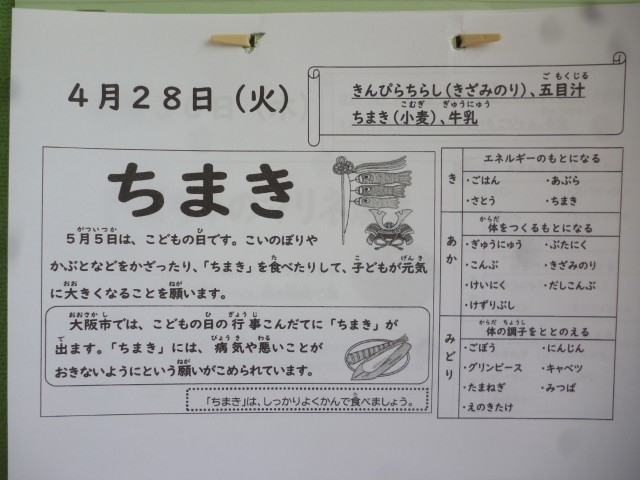 4月28日（火）
きんぴらちらし（きざみのり）、五目汁
ちまき（小麦）、牛乳
ちまき
5月5日は、こどもの日です。こいのぼりや
かぶとなどをかざったり、「ちまき」を食べたりして、子どもが元気
に大きくなることを願います。
大阪市では、こどもの日の行事こんだてに「ちまき」が
出ます。「ちまき」には、病気や悪いことが
おきないようにという願いがこめられています。
「ちまき」は、しっかりよくかんで食べましょう。
き
エネルギーのもとになる
・ごはん ・あぶら
・さとう ・ちまき
あか
体をつくるもとになる
・ぎゅうにゅう ・ぶたにく
・こんぶ ・きざみのり
・けいにく ・だしこんぶ
・けずりぶし
みどり
体の調子をととのえる
・ごぼう ・にんじん
・グリンピース ・キャベツ
・たまねぎ ・みつば
・えのきたけ